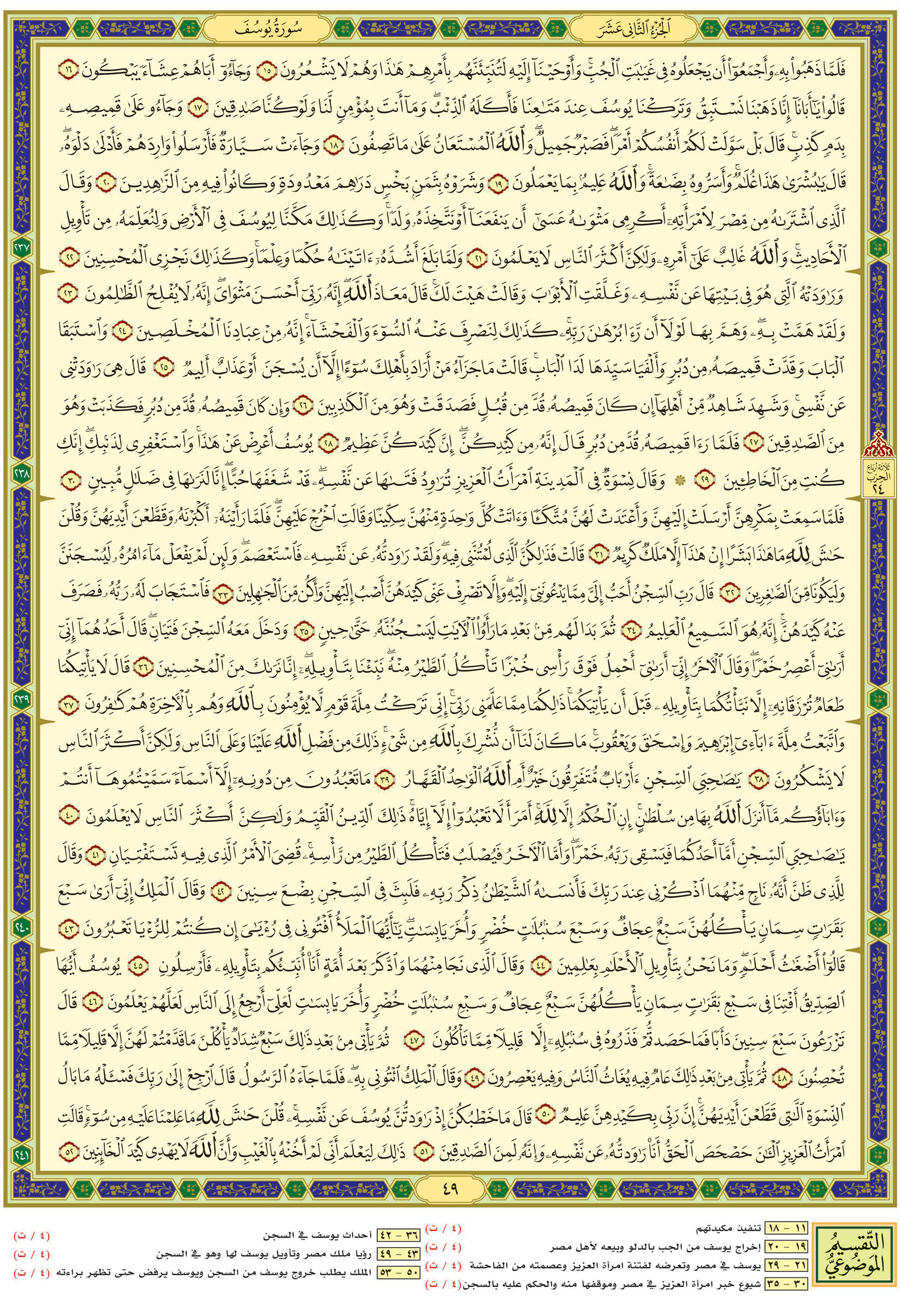 الجُزْءُ الثَّانِي عَشَرَ
سُورَةُ يُوسُفَ
فَلَمَّا ذَهَبُوا۟ بِهِۦ وَأَجْمَعُوٓا۟ أَن يَجْعَلُوهُ فِى غَيَٰبَتِ ٱلْجُبِّ ۚ وَأَوْحَيْنَآ إِلَيْهِ لَتُنَبِّئَنَّهُم بِأَمْرِهِمْ هَٰذَا وَهُمْ لَا يَشْعُرُونَ ١٥ وَجَآءُوٓ أَبَاهُمْ عِشَآءً يَبْكُونَ ١٦
قَالُوا۟ يَٰٓأَبَانَآ إِنَّا ذَهَبْنَا نَسْتَبِقُ وَتَرَكْنَا يُوسُفَ عِندَ مَتَٰعِنَا فَأَكَلَهُ ٱلذِّئْبُ ۖ وَمَآ أَنتَ بِمُؤْمِنٍ لَّنَا وَلَوْ كُنَّا صَٰدِقِينَ ١٧ وَجَآءُو عَلَىٰ قَمِيصِهِۦ
بِدَمٍ كَذِبٍ ۚ قَالَ بَلْ سَوَّلَتْ لَكُمْ أَنفُسُكُمْ أَمْرًا ۖ فَصَبْرٌ جَمِيلٌ ۖ وَٱللَّهُ ٱلْمُسْتَعَانُ عَلَىٰ مَا تَصِفُونَ ١٨ وَجَآءَتْ سَيَّارَةٌ فَأَرْسَلُوا۟ وَارِدَهُمْ فَأَدْلَىٰ دَلْوَهُۥ ۖ
قَالَ يَٰبُشْرَىٰ هَٰذَا غُلَٰمٌ ۚ وَأَسَرُّوهُ بِضَٰعَةً ۚ وَٱللَّهُ عَلِيمٌۢ بِمَا يَعْمَلُونَ ١٩ وَشَرَوْهُ بِثَمَنٍۭ بَخْسٍ دَرَٰهِمَ مَعْدُودَةٍ وَكَانُوا۟ فِيهِ مِنَ ٱلزَّٰهِدِينَ ٢٠ وَقَالَ
ٱلَّذِى ٱشْتَرَىٰهُ مِن مِّصْرَ لِٱمْرَأَتِهِۦٓ أَكْرِمِى مَثْوَىٰهُ عَسَىٰٓ أَن يَنفَعَنَآ أَوْ نَتَّخِذَهُۥ وَلَدًا ۚ وَكَذَٰلِكَ مَكَّنَّا لِيُوسُفَ فِى ٱلْأَرْضِ وَلِنُعَلِّمَهُۥ مِن تَأْوِيلِ
ٱلْأَحَادِيثِ ۚ وَٱللَّهُ غَالِبٌ عَلَىٰٓ أَمْرِهِۦ وَلَٰكِنَّ أَكْثَرَ ٱلنَّاسِ لَا يَعْلَمُونَ ٢١ وَلَمَّا بَلَغَ أَشُدَّهُۥٓ ءَاتَيْنَٰهُ حُكْمًا وَعِلْمًا ۚ وَكَذَٰلِكَ نَجْزِى ٱلْمُحْسِنِينَ ٢٢
وَرَٰوَدَتْهُ ٱلَّتِى هُوَ فِى بَيْتِهَا عَن نَّفْسِهِۦ وَغَلَّقَتِ ٱلْأَبْوَٰبَ وَقَالَتْ هَيْتَ لَكَ ۚ قَالَ مَعَاذَ ٱللَّهِ ۖ إِنَّهُۥ رَبِّىٓ أَحْسَنَ مَثْوَاىَ ۖ إِنَّهُۥ لَا يُفْلِحُ ٱلظَّٰلِمُونَ ٢٣
وَلَقَدْ هَمَّتْ بِهِۦ ۖ وَهَمَّ بِهَا لَوْلَآ أَن رَّءَا بُرْهَٰنَ رَبِّهِۦ ۚ كَذَٰلِكَ لِنَصْرِفَ عَنْهُ ٱلسُّوٓءَ وَٱلْفَحْشَآءَ ۚ إِنَّهُۥ مِنْ عِبَادِنَا ٱلْمُخْلَصِينَ ٢٤ وَٱسْتَبَقَا
ٱلْبَابَ وَقَدَّتْ قَمِيصَهُۥ مِن دُبُرٍ وَأَلْفَيَا سَيِّدَهَا لَدَا ٱلْبَابِ ۚ قَالَتْ مَا جَزَآءُ مَنْ أَرَادَ بِأَهْلِكَ سُوٓءًا إِلَّآ أَن يُسْجَنَ أَوْ عَذَابٌ أَلِيمٌ ٢٥ قَالَ هِىَ رَٰوَدَتْنِى
عَن نَّفْسِى ۚ وَشَهِدَ شَاهِدٌ مِّنْ أَهْلِهَآ إِن كَانَ قَمِيصُهُۥ قُدَّ مِن قُبُلٍ فَصَدَقَتْ وَهُوَ مِنَ ٱلْكَٰذِبِينَ ٢٦ وَإِن كَانَ قَمِيصُهُۥ قُدَّ مِن دُبُرٍ فَكَذَبَتْ وَهُوَ
مِنَ ٱلصَّٰدِقِينَ ٢٧ فَلَمَّا رَءَا قَمِيصَهُۥ قُدَّ مِن دُبُرٍ قَالَ إِنَّهُۥ مِن كَيْدِكُنَّ ۖ إِنَّ كَيْدَكُنَّ عَظِيمٌ ٢٨ يُوسُفُ أَعْرِضْ عَنْ هَٰذَا ۚ وَٱسْتَغْفِرِى لِذَنۢبِكِ ۖ إِنَّكِ
كُنتِ مِنَ ٱلْخَاطِـِٔينَ ٢٩ ۞ وَقَالَ نِسْوَةٌ فِى ٱلْمَدِينَةِ ٱمْرَأَتُ ٱلْعَزِيزِ تُرَٰوِدُ فَتَىٰهَا عَن نَّفْسِهِۦ ۖ قَدْ شَغَفَهَا حُبًّا ۖ إِنَّا لَنَرَىٰهَا فِى ضَلَٰلٍ مُّبِينٍ ٣٠
فَلَمَّا سَمِعَتْ بِمَكْرِهِنَّ أَرْسَلَتْ إِلَيْهِنَّ وَأَعْتَدَتْ لَهُنَّ مُتَّكَـًٔا وَءَاتَتْ كُلَّ وَٰحِدَةٍ مِّنْهُنَّ سِكِّينًا وَقَالَتِ ٱخْرُجْ عَلَيْهِنَّ ۖ فَلَمَّا رَأَيْنَهُۥٓ أَكْبَرْنَهُۥ وَقَطَّعْنَ أَيْدِيَهُنَّ وَقُلْنَ
حَٰشَ لِلَّهِ مَا هَٰذَا بَشَرًا إِنْ هَٰذَآ إِلَّا مَلَكٌ كَرِيمٌ ٣١ قَالَتْ فَذَٰلِكُنَّ ٱلَّذِى لُمْتُنَّنِى فِيهِ ۖ وَلَقَدْ رَٰوَدتُّهُۥ عَن نَّفْسِهِۦ فَٱسْتَعْصَمَ ۖ وَلَئِن لَّمْ يَفْعَلْ مَآ ءَامُرُهُۥ لَيُسْجَنَنَّ
وَلَيَكُونًا مِّنَ ٱلصَّٰغِرِينَ ٣٢ قَالَ رَبِّ ٱلسِّجْنُ أَحَبُّ إِلَىَّ مِمَّا يَدْعُونَنِىٓ إِلَيْهِ ۖ وَإِلَّا تَصْرِفْ عَنِّى كَيْدَهُنَّ أَصْبُ إِلَيْهِنَّ وَأَكُن مِّنَ ٱلْجَٰهِلِينَ ٣٣ فَٱسْتَجَابَ لَهُۥ رَبُّهُۥ فَصَرَفَ
عَنْهُ كَيْدَهُنَّ ۚ إِنَّهُۥ هُوَ ٱلسَّمِيعُ ٱلْعَلِيمُ ٣٤ ثُمَّ بَدَا لَهُم مِّنۢ بَعْدِ مَا رَأَوُا۟ ٱلْـَٔايَٰتِ لَيَسْجُنُنَّهُۥ حَتَّىٰ حِينٍ ٣٥ وَدَخَلَ مَعَهُ ٱلسِّجْنَ فَتَيَانِ ۖ قَالَ أَحَدُهُمَآ إِنِّىٓ
أَرَىٰنِىٓ أَعْصِرُ خَمْرًا ۖ وَقَالَ ٱلْـَٔاخَرُ إِنِّىٓ أَرَىٰنِىٓ أَحْمِلُ فَوْقَ رَأْسِى خُبْزًا تَأْكُلُ ٱلطَّيْرُ مِنْهُ ۖ نَبِّئْنَا بِتَأْوِيلِهِۦٓ ۖ إِنَّا نَرَىٰكَ مِنَ ٱلْمُحْسِنِينَ ٣٦ قَالَ لَا يَأْتِيكُمَا
طَعَامٌ تُرْزَقَانِهِۦٓ إِلَّا نَبَّأْتُكُمَا بِتَأْوِيلِهِۦ قَبْلَ أَن يَأْتِيَكُمَا ۚ ذَٰلِكُمَا مِمَّا عَلَّمَنِى رَبِّىٓ ۚ إِنِّى تَرَكْتُ مِلَّةَ قَوْمٍ لَّا يُؤْمِنُونَ بِٱللَّهِ وَهُم بِٱلْـَٔاخِرَةِ هُمْ كَٰفِرُونَ ٣٧
وَٱتَّبَعْتُ مِلَّةَ ءَابَآءِىٓ إِبْرَٰهِيمَ وَإِسْحَٰقَ وَيَعْقُوبَ ۚ مَا كَانَ لَنَآ أَن نُّشْرِكَ بِٱللَّهِ مِن شَىْءٍ ۚ ذَٰلِكَ مِن فَضْلِ ٱللَّهِ عَلَيْنَا وَعَلَى ٱلنَّاسِ وَلَٰكِنَّ أَكْثَرَ ٱلنَّاسِ
لَا يَشْكُرُونَ ٣٨ يَٰصَٰحِبَىِ ٱلسِّجْنِ ءَأَرْبَابٌ مُّتَفَرِّقُونَ خَيْرٌ أَمِ ٱللَّهُ ٱلْوَٰحِدُ ٱلْقَهَّارُ ٣٩ مَا تَعْبُدُونَ مِن دُونِهِۦٓ إِلَّآ أَسْمَآءً سَمَّيْتُمُوهَآ أَنتُمْ
وَءَابَآؤُكُم مَّآ أَنزَلَ ٱللَّهُ بِهَا مِن سُلْطَٰنٍ ۚ إِنِ ٱلْحُكْمُ إِلَّا لِلَّهِ ۚ أَمَرَ أَلَّا تَعْبُدُوٓا۟ إِلَّآ إِيَّاهُ ۚ ذَٰلِكَ ٱلدِّينُ ٱلْقَيِّمُ وَلَٰكِنَّ أَكْثَرَ ٱلنَّاسِ لَا يَعْلَمُونَ ٤٠
يَٰصَٰحِبَىِ ٱلسِّجْنِ أَمَّآ أَحَدُكُمَا فَيَسْقِى رَبَّهُۥ خَمْرًا ۖ وَأَمَّا ٱلْـَٔاخَرُ فَيُصْلَبُ فَتَأْكُلُ ٱلطَّيْرُ مِن رَّأْسِهِۦ ۚ قُضِىَ ٱلْأَمْرُ ٱلَّذِى فِيهِ تَسْتَفْتِيَانِ ٤١ وَقَالَ
لِلَّذِى ظَنَّ أَنَّهُۥ نَاجٍ مِّنْهُمَا ٱذْكُرْنِى عِندَ رَبِّكَ فَأَنسَىٰهُ ٱلشَّيْطَٰنُ ذِكْرَ رَبِّهِۦ فَلَبِثَ فِى ٱلسِّجْنِ بِضْعَ سِنِينَ ٤٢ وَقَالَ ٱلْمَلِكُ إِنِّىٓ أَرَىٰ سَبْعَ
بَقَرَٰتٍ سِمَانٍ يَأْكُلُهُنَّ سَبْعٌ عِجَافٌ وَسَبْعَ سُنۢبُلَٰتٍ خُضْرٍ وَأُخَرَ يَابِسَٰتٍ ۖ يَٰٓأَيُّهَا ٱلْمَلَأُ أَفْتُونِى فِى رُءْيَٰىَ إِن كُنتُمْ لِلرُّءْيَا تَعْبُرُونَ ٤٣
قَالُوٓا۟ أَضْغَٰثُ أَحْلَٰمٍ ۖ وَمَا نَحْنُ بِتَأْوِيلِ ٱلْأَحْلَٰمِ بِعَٰلِمِينَ ٤٤ وَقَالَ ٱلَّذِى نَجَا مِنْهُمَا وَٱدَّكَرَ بَعْدَ أُمَّةٍ أَنَا۠ أُنَبِّئُكُم بِتَأْوِيلِهِۦ فَأَرْسِلُونِ ٤٥ يُوسُفُ أَيُّهَا
ٱلصِّدِّيقُ أَفْتِنَا فِى سَبْعِ بَقَرَٰتٍ سِمَانٍ يَأْكُلُهُنَّ سَبْعٌ عِجَافٌ وَسَبْعِ سُنۢبُلَٰتٍ خُضْرٍ وَأُخَرَ يَابِسَٰتٍ لَّعَلِّىٓ أَرْجِعُ إِلَى ٱلنَّاسِ لَعَلَّهُمْ يَعْلَمُونَ ٤٦ قَالَ
تَزْرَعُونَ سَبْعَ سِنِينَ دَأَبًا فَمَا حَصَدتُّمْ فَذَرُوهُ فِى سُنۢبُلِهِۦٓ إِلَّا قَلِيلًا مِّمَّا تَأْكُلُونَ ٤٧ ثُمَّ يَأْتِى مِنۢ بَعْدِ ذَٰلِكَ سَبْعٌ شِدَادٌ يَأْكُلْنَ مَا قَدَّمْتُمْ لَهُنَّ إِلَّا قَلِيلًا مِّمَّا
تُحْصِنُونَ ٤٨ ثُمَّ يَأْتِى مِنۢ بَعْدِ ذَٰلِكَ عَامٌ فِيهِ يُغَاثُ ٱلنَّاسُ وَفِيهِ يَعْصِرُونَ ٤٩ وَقَالَ ٱلْمَلِكُ ٱئْتُونِى بِهِۦ ۖ فَلَمَّا جَآءَهُ ٱلرَّسُولُ قَالَ ٱرْجِعْ إِلَىٰ رَبِّكَ فَسْـَٔلْهُ مَا بَالُ
ٱلنِّسْوَةِ ٱلَّٰتِى قَطَّعْنَ أَيْدِيَهُنَّ ۚ إِنَّ رَبِّى بِكَيْدِهِنَّ عَلِيمٌ ٥٠ قَالَ مَا خَطْبُكُنَّ إِذْ رَٰوَدتُّنَّ يُوسُفَ عَن نَّفْسِهِۦ ۚ قُلْنَ حَٰشَ لِلَّهِ مَا عَلِمْنَا عَلَيْهِ مِن سُوٓءٍ ۚ قَالَتِ
ٱمْرَأَتُ ٱلْعَزِيزِ ٱلْـَٰٔنَ حَصْحَصَ ٱلْحَقُّ أَنَا۠ رَٰوَدتُّهُۥ عَن نَّفْسِهِۦ وَإِنَّهُۥ لَمِنَ ٱلصَّٰدِقِينَ ٥١ ذَٰلِكَ لِيَعْلَمَ أَنِّى لَمْ أَخُنْهُ بِٱلْغَيْبِ وَأَنَّ ٱللَّهَ لَا يَهْدِى كَيْدَ ٱلْخَآئِنِينَ ٥٢
٢٣٧
٢٣٨
٢٣٩
٢٤٠
٢٤١
ثلاثة أرباع
الحزب
٢٤
٤٩
التَّقسِيمُ
المَوضُوعِيُّ
١١ - ١٨ تنفيذ مكيدتهم (٤ / ت)
١٩ - ٢٠ إخراج يوسف من الجب بالدلو وبيعه لأهل مصر (٤ / ت)
٢١ - ٢٩ يوسف في مصر وتعرضه لفتنة امرأة العزيز وعصمته من الفاحشة (٤ / ت)
٣٠ - ٣٥ شيوع خبر امرأة العزيز في مصر وموقفها منه والحكم عليه بالسجن (٤ / ت)
٣٦ - ٤٢ أحداث يوسف في السجن (٤ / ت)
٤٣ - ٤٩ رؤيا ملك مصر وتأويل يوسف لها وهو في السجن (٤ / ت)
٥٠ - ٥٣ الملك يطلب خروج يوسف من السجن ويوسف يرفض حتى تظهر براءته (٤ / ت)